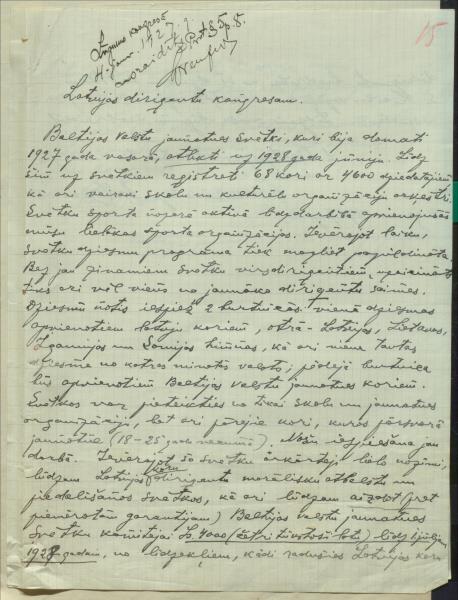 Lūgums kongresā
4. janv. 1927. g.
noraidīts Prot. § 5 p. 8.
15
Latvijas dirigentu kongresam.
Baltijas valstu jaunatnes svētki, kuri bija domāti
1927 gada vasarā, atlikti uz 1928 gada jūniju. Līdz
šim uz svētkiem reģistrēti 68 kori ar 4600 dziedātājiem
kā arī vairāki skolu un kultūrālo organizāciju orķestri.
Svētku sporta nozarē aktīvā līdzdarbībā apvienojušās
mūsu lielākās sporta organizācijas. Ievērojot laiku,
svētku dziesmu programa tiek mazliet papildināta.
Bez jau zināmiem svētku virsdirigentiem,
tiks arī vēl viens no jaunāko dirigentu saimes.
Dziesmu notis iespiež 2 burtnīcās: vienā dziesmas
apvienotiem latvju koriem, otrā - Latvijas, Lietavas,
Igaunijas un Somijas himnas, kā arī viena tautas
dziesma no katras minētās valsts; pēdējā burtnīca
būs apvienotiem Baltijas valstu jaunatnes koriem.
Svētkos var pieteikties ne tikai skolu un jaunatnes
organizāciju, bet arī pārējie kori, kuros pārsvarā
jaunatne (18-25 gadu vecumā). Nošu iespiešana jau
darbā. Ievērojot šo svētku ārkārtēji lielo nozīmi,
lūdzam Latvijas koru dirigentu morālisku atbalstu un
piedalīšanos svētkos, kā arī lūdzam aizdot (pret
pienācošām garantijām) Baltijas valstu jaunatnes
svētku komitejai Ls 4000 (četri tūkstoši latu) līdz jūlijam
1928 gadam, no līdzekļiem, kādi radušies Latvijas koru